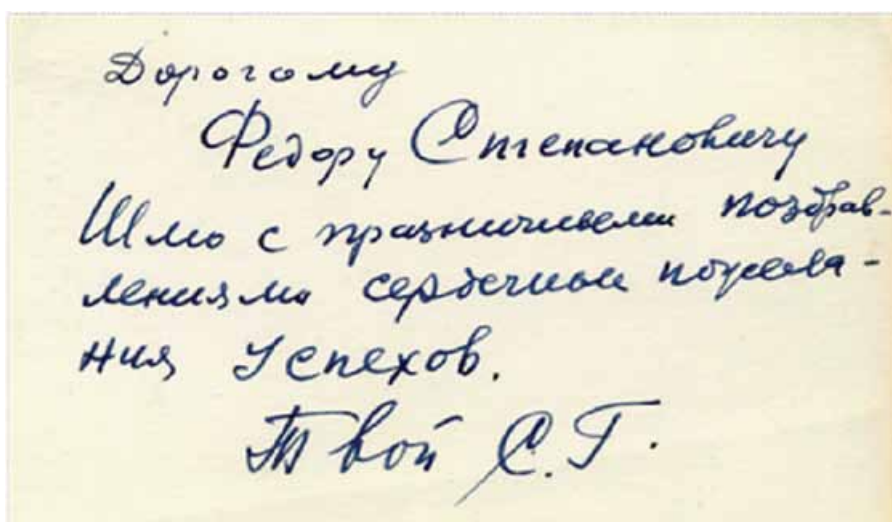 Дорогому
Федору Степановичу
Шлю с праздничными поздрав-
лениями сердечные пожела-
ния успехов.
Твой С.Г.